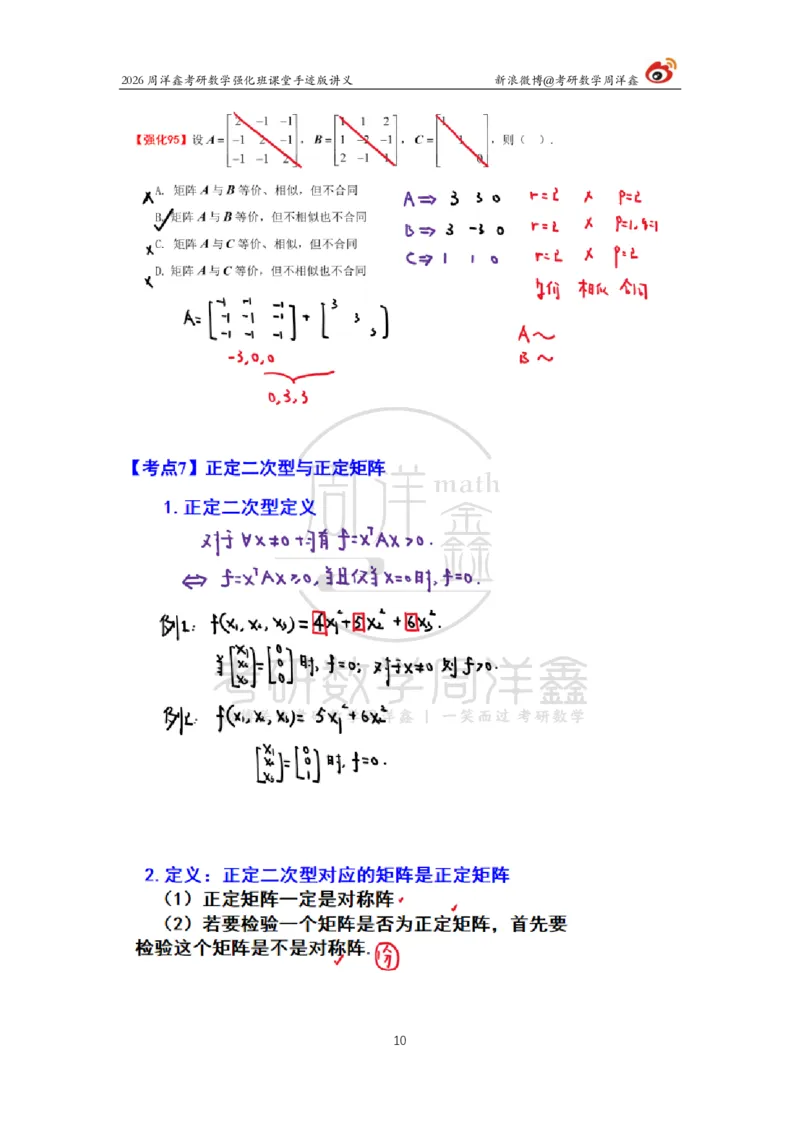 2026周洋鑫考研数学强化班课堂手迹版讲义 新浪微博@考研数学周洋鑫
【强化95】设 A = [2 -1 -1; -1 2 -1; -1 -1 2], B = [1 1 2; 1 -2 -1; 2 -1 1], C = [1; 1; 0], 则( ).
A. 矩阵 A 与 B 等价、相似，但不合同
B. 矩阵 A 与 B 等价，但不相似也不合同
C. 矩阵 A 与 C 等价、相似，但不合同
D. 矩阵 A 与 C 等价，但不相似也不合同
A⇒ 3 3 0 r=2 × p=2
B⇒ 3 -3 0 r=2 × p=1, q=1
C⇒ 1 1 0 r=2 × p=2
等价 相似 合同
A= [-1 -1 -1; -1 -1 -1; -1 -1 -1] + [3; 3; 3]
-3,0,0
0,3,3
A~
B~
周洋 math 金鑫
【考点7】正定二次型与正定矩阵
1. 正定二次型定义
对于∀x≠0均有 f=xᵀAx>0.
⇔ f=xᵀAx≥0, 当且仅当x=0时, f=0.
例1: f(x₁,x₂,x₃)=4x₁²+5x₂²+6x₃².
当[x₁; x₂; x₃]=[0; 0; 0]时, f=0; 对于x≠0 则 f>0.
考研数学周洋鑫
例2: f(x₁,x₂,x₃)=5x₁²+6x₂²
考研数学周洋鑫 | 一笑而过 考研数学
[x₁; x₂; x₃]=[0; 0; 1]时, f=0.
2. 定义：正定二次型对应的矩阵是正定矩阵
（1）正定矩阵一定是对称阵
（2）若要检验一个矩阵是否为正定矩阵，首先要
检验这个矩阵是不是对称阵.
10